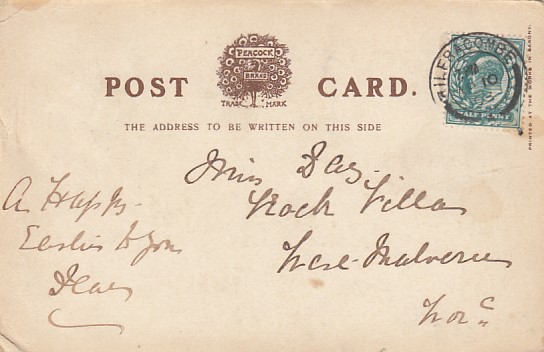 POST CARD.
PEACOCK
BRAND
TRADE MARK
THE ADDRESS TO BE WRITTEN ON THIS SIDE
ILFRACOMBE
10
HALF PENNY
PRINTED AT THE WORKS IN SAXONY.
Miss Day.
Rock Villa
West Malvern
Worc
A Happy
Easter to you
Dear